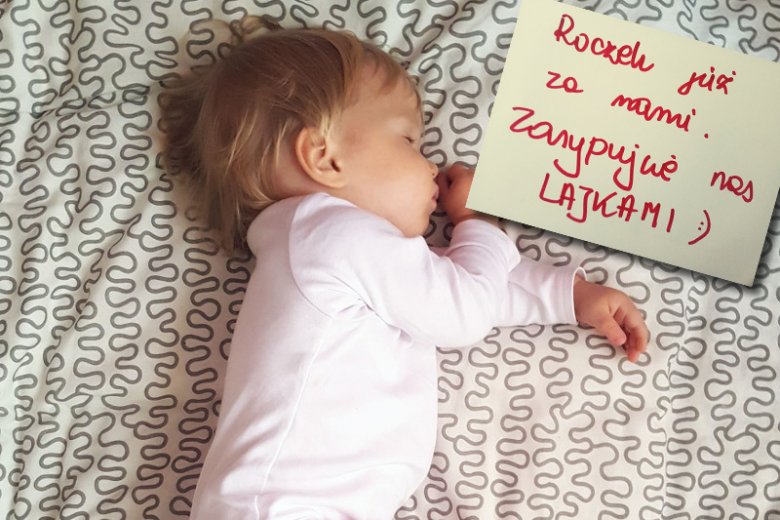 Roczek już
za nami.
Zasypujcie nas
LAJKAMI :)